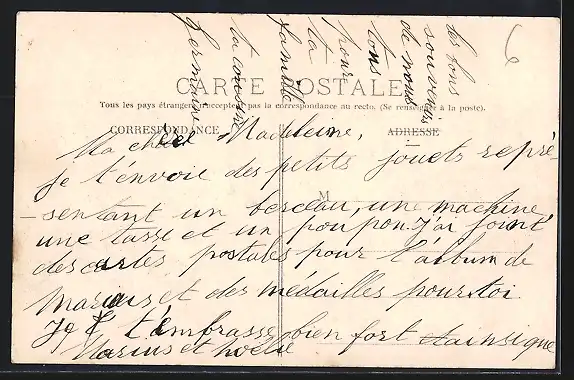 CARTE POSTALE
Tous les pays étrangers n'acceptent pas la correspondance au recto. (Se renseigner à la poste).
CORRESPONDANCE
ADRESSE
M
Ma chère Madeleine,
je t'envoie des petits jouets repré-
sentant un berceau, une machine
une tasse et un poupon. J'ai joint
des cartes postales pour l'album de
Marius et des médailles pour toi.
Je t'embrasse bien fort ainsi que
Marius et Noélie
les bons
souvenirs
de nous
tous
pour
ta
famille
ta cousine
Germaine